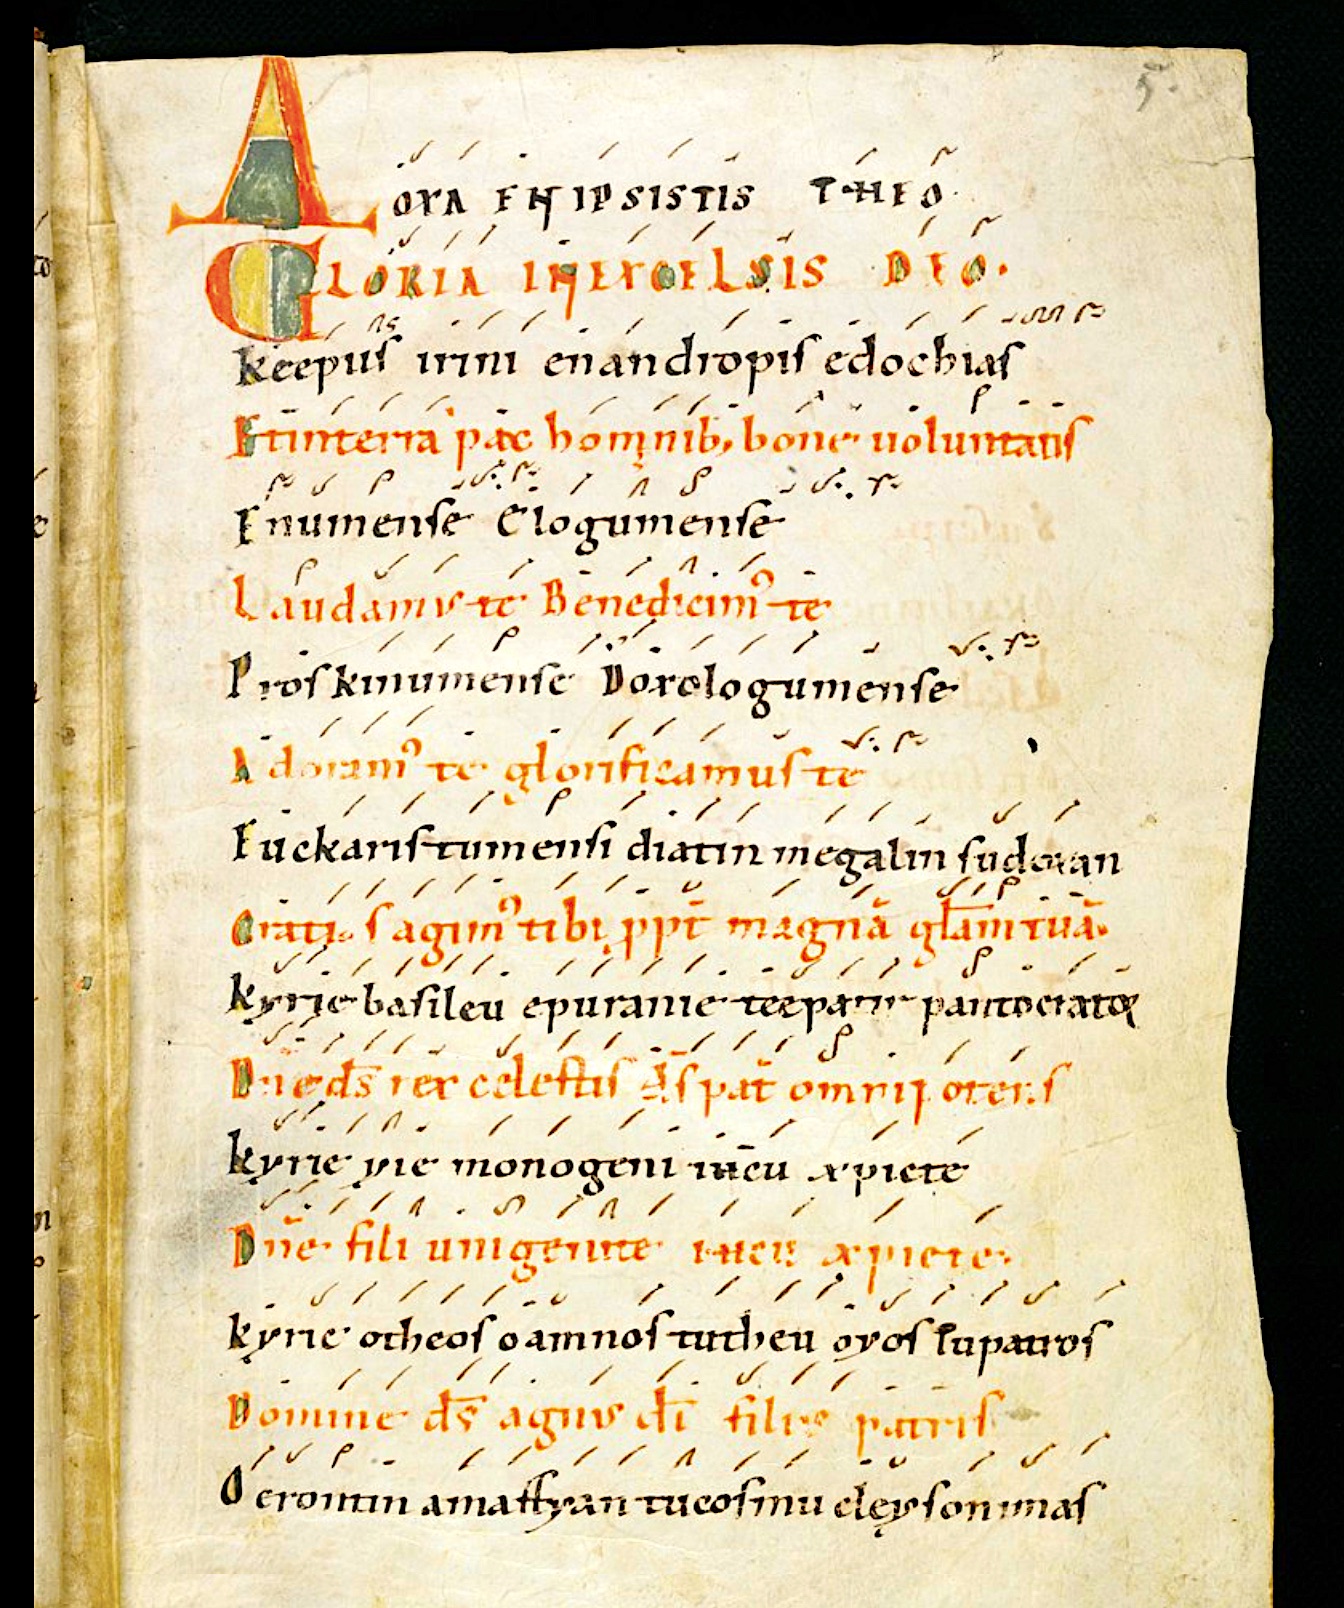 5.
Δoxa en ipsistis theo.
Gloria inexcelsis deo.
Keepius irini enandropis edochias
Etinterra pax hominib; bone uoluntatis
Enumense Elogumense
Laudamus te Benedicimꝰ te
Proskinumense Doxologumense
Adoramꝰ te glorificamus te
Euckaristumensi diatin megalin sudoxan
Gratias agimꝰ tibi ppt̄ magnā gl̄am tuā.
kyrie basileu epuranie theepatir pantocrator
Dn̄e ds̄ rex celestis ds̄ pat̄ omnipotens
kyrie yie monogeni ihcu xpicte
Dn̄e fili unigenite ihcu xpicte.
kyrie otheos oamnos tutheu oyos tupatros
Domine ds̄ agnus dī filius patris
Oerontin amartyan tucosmu eleyson imas